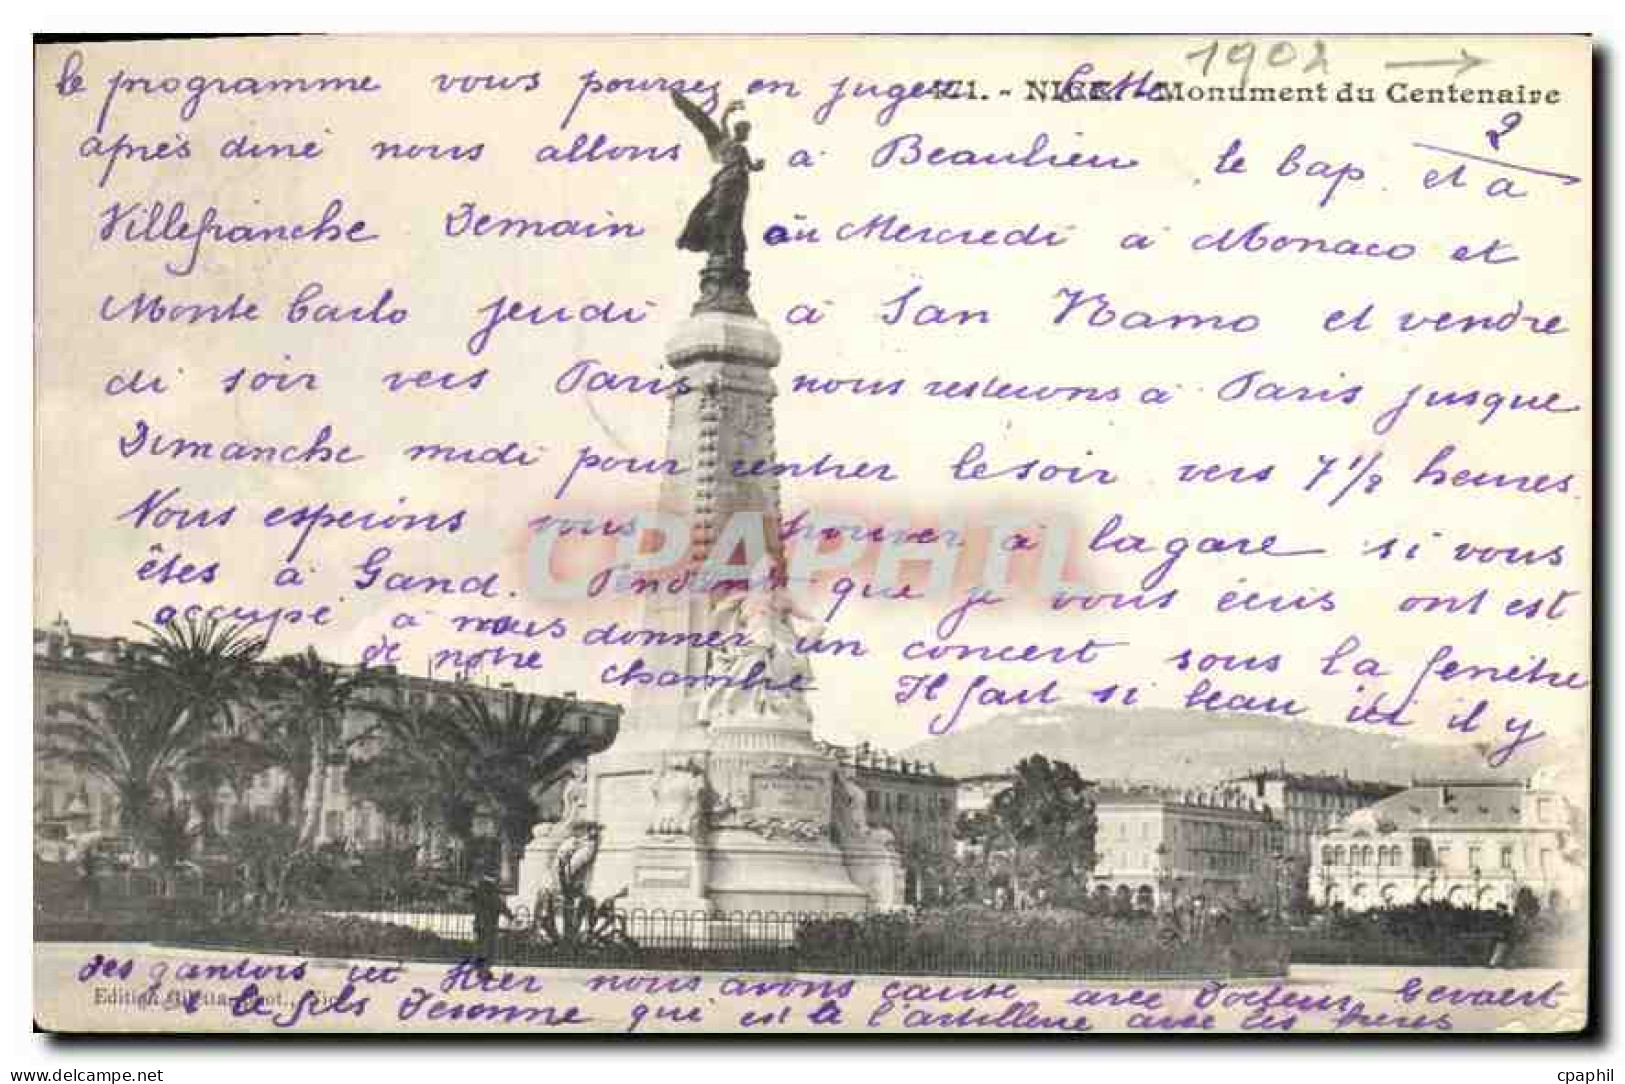 1902 →
471. - NICE. - Monument du Centenaire
2
le programme vous pourrez en juger Cette
après diné nous allons à Beaulieu le Cap et a
Villefranche Demain ou Mercredi à Monaco et
Monte Carlo jeudi à San Remo et vendre
di soir vers Paris nous resterons à Paris jusque
Dimanche midi pour rentrer le soir vers 7 1/2 heures
Nous esperons vous trouver à la gare si vous
êtes à Gand. Pendant que je vous écris on est
occupé à nous donner un concert sous la fenêtre
de notre chambre Il fait si beau ici il y
des gantois ici Hier nous avons causé avec Docteur Gevaert
& le fils Desonne que est à l'artillerie avec les frères
Edition Giletta, phot., Nice
CPAPHIL
www.delcampe.net
cpaphil